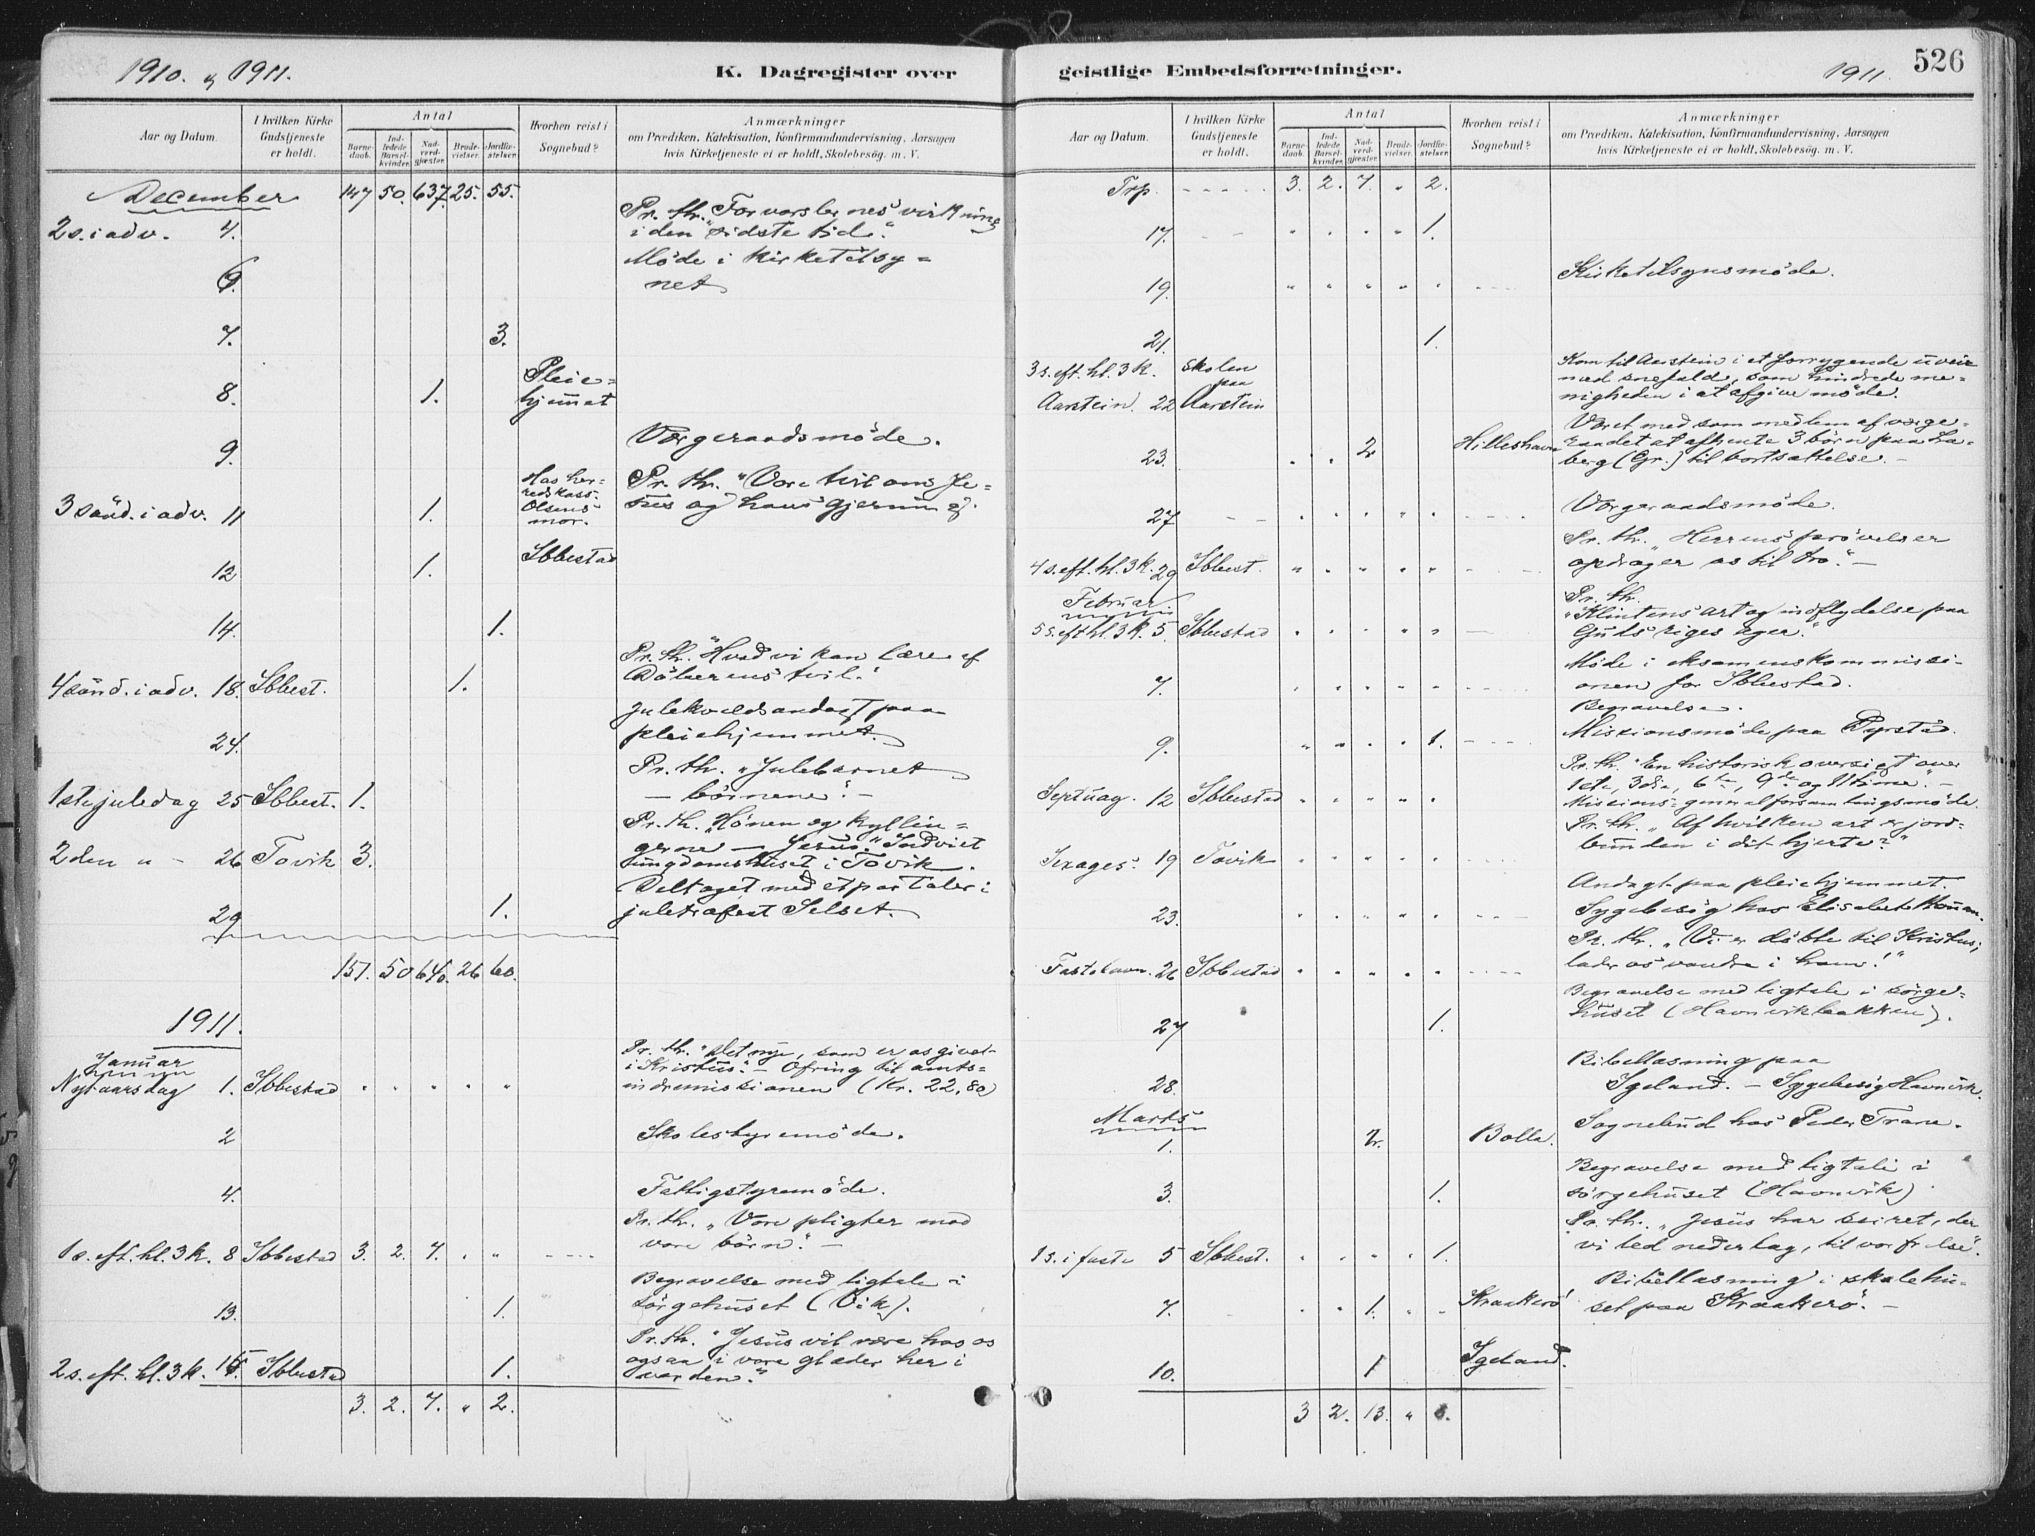 1910. og 1911.
K. Dagregister over
Aar og Datum.
I hvilken Kirke Gudstjeneste er holdt.
Antal
Barnedaab.
Indledede Barselkvinder.
Nadverdgjæster.
Brudevielser.
Jordfæstelser.
Hvorhen reist i Sognebud?
Anmærkninger
om Prædiken, Katekisation, Konfirmandundervisning, Aarsagen
hvis Kirketjeneste ei er holdt, Skolebesøg. m. V.
December 147 50. 637. 25. 55.
2 s. i adv. 4. Pr. th. "Forvarslernes virkning
i den sidste tid."
6. Møde i kirketilsy=
net
7. 3.
8. 1. Pleie=
hjemmet
9. Vergeraadsmøde.
3 sönd. i adv. 11 1. Hos her-
redskass.
Olsens
mor. Pr. th. "Vore tvil om Je-
sus og hans gjerning.
12 1. Ibbestad
14. 1.
4 sönd. i adv. 18. Ibbest. 1. Pr. th. "Hvad vi kan lære af
Döberens tvil."
24. Julekveldsandagt paa
pleiehjemmet.
1ste juledag 25 Ibbest. 1. Pr. th. "Julebarnet
— börnene". —
2den " - 26 Tovik 3. Pr. th. "Hönen og kyllin=
gerne — Jesus." Indviet
ungdomshuset i Tovik.
29 1. Deltaget med et par taler i
juletræfest Selset.
151. 50 640. 26 60.
1911.
Januar
Nytaarsdag 1. Ibbestad " " " " " Pr. th. "Det nye, som er os givet
i Kristus". — Ofring til amts=
indremissionen (kr. 22,80)
2 Skolestyremøde.
4. Fattigstyremøde.
1 s. eft. hl. 3 k. 8 Ibbestad 3. 2. 7. " " Pr. th. "Vore pligter mod
vore börn". —
13. 1. Begravelse med ligtale i
sörgehuset (Vik).
2 s. eft. hl. 3 k. 15 Ibbestad 1. Pr. th. "Jesus vil være hos os
ogsaa i vore glæder her i
verden."
3. 2. 7. " 2.
geistlige Embedsforretninger.
1911.
526
Aar og Datum.
I hvilken Kirke Gudstjeneste er holdt.
Antal
Barnedaab.
Indledede Barselkvinder.
Nadverdgjæster.
Brudevielser.
Jordfæstelser.
Hvorhen reist i Sognebud?
Anmærkninger
om Prædiken, Katekisation, Konfirmandundervisning, Aarsagen
hvis Kirketjeneste ei er holdt, Skolebesøg. m. V.
Trp. 3. 2. 7. " 2.
17. " " " " 1.
19. " " " " " Kirketilsynsmøde.
21. 1.
3 s. eft. hl. 3 k.
Aarstein. 22 Skolen
paa
Aarstein Kom til Aarstein i et forrygende uveir
med snefald, som hindrede me-
nigheden i at afgive møde.
23. " " 2 Hilleshavn Været med som medlem af verge-
raadet at afhente 3 børn paa La-
berg (Gr.) til bortsættelse. —
27 " " " " " Vergeraadsmøde.
4 s. eft. hl. 3 k. 29 Ibbest. " " " " " Pr. th. "Herrens prøvelser
opdrager os til tro". —
Februar
5 s. eft hl. 3 k. 5. Ibbestad " " " " " Pr. th.
"Klintens art og indflydelse paa
Guds riges ager."
7. " " " " " Møde i eksamenskommissi-
onen for Ibbestad.
9. " " " " 1. Begravelse.
Missionsmøde paa Dyrstad.
Septuag. 12 Ibbestad " " " " Pr. th. "En historisk oversigt over
1ste, 3die, 6te, 9de og 11time". —
Missions-generalforsamlingsmøde.
Sexages. 19 Tovik " " " " " Pr. th. "Af hvilken art er jord-
bunden i dit hjerte?"
23. " " " " " Andagt paa pleiehjemmet.
Sygebesøg hos Elisabet
Fastelavn. 26 Ibbestad " " " " " Pr. th. "Vi er döbte til Kristus;
lader os vandre i ham!"
27 1. Begravelse med ligtale i sörge=
huset (Havnvikbakken).
28. Bibellæsning paa
Igeland. — Sygebesøg Havnvik.
Marts
1. Bolla. Sognebud hos Peder Trane.
3. 1. Begravelse med ligtale i
sörgehuset (Havnvik)
1 s. i faste 5 Ibbest. " " " " 1. Pr. th. "Jesus har seiret, der
vi led nederlag, til vor frelse".
7. " " 1. " " Kraakerö Bibellæsning i skolehu-
set paa Kraakerö". —
10. 1 Igeland.
3 2. 13. "